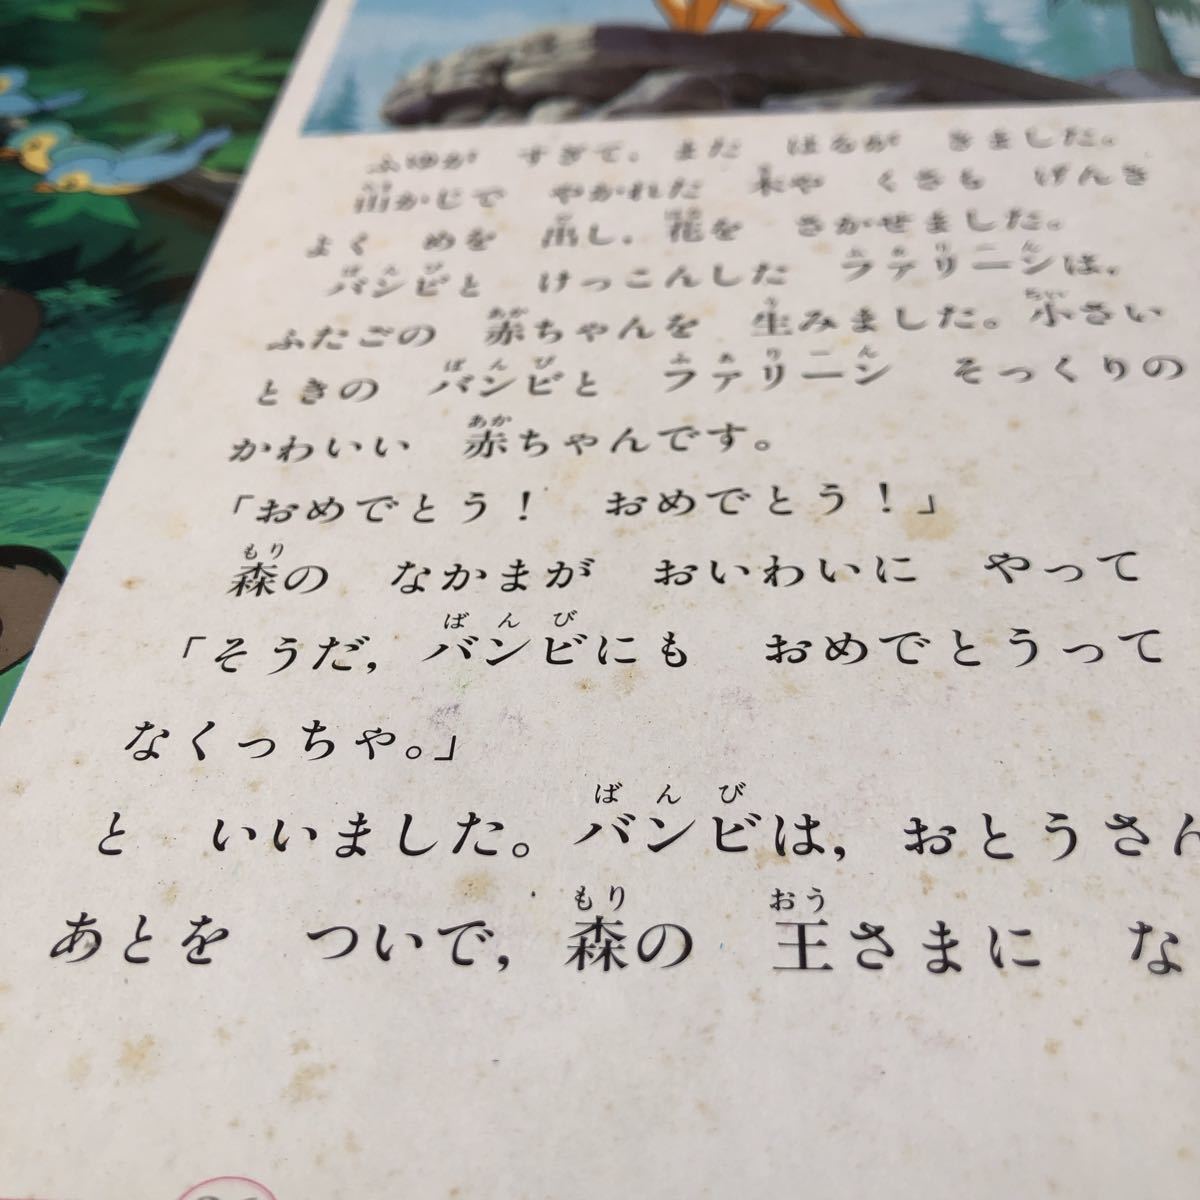 ふゆが　すぎて、また　はるが　きました。
山かじで　やかれた　木や　くさも　げんき
よく　めを　出し、花を　さかせました。
バンビと　けっこんした　ファリーンは、
ふたごの　赤ちゃんを　生みました。小さい
ときの　バンビと　ファリーン　そっくりの
かわいい　赤ちゃんです。
「おめでとう！　おめでとう！」
森の　なかまが　おいわいに　やって
「そうだ，バンビにも　おめでとうって
なくっちゃ。」
と　いいました。バンビは，おとうさん
あとを　ついで，森の　王さまに　な